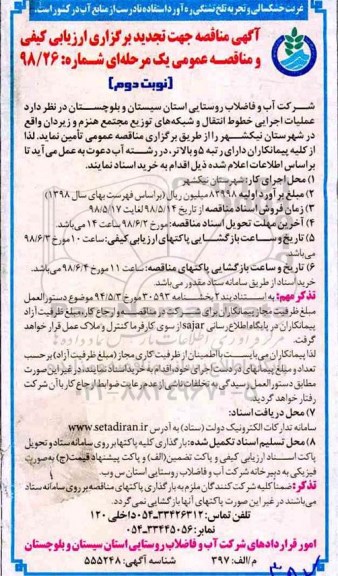 عزیت خشکسالی و تجربه تلخ تشنگی ره آورد استفاده نادرست از منابع آب در کشور است
آگهی مناقصه جهت تجدید برگزاری ارزیابی کیفی
و مناقصه عمومی یک مرحله‌ای شماره: ۹۸/۲۶
(نوبت دوم)
شرکت آب و فاضلاب روستایی استان سیستان و بلوچستان در نظر دارد
عملیات اجرایی خطوط انتقال و شبکه‌های توزیع مجتمع هنزم و زیردان واقع
در شهرستان نیکشهر را از طریق برگزاری مناقصه عمومی تأمین نماید. لذا
از کلیه پیمانکاران دارای رتبه ۵ و بالاتر، در رشته آب دعوت به عمل می‌آید تا
براساس اطلاعات اعلام شده ذیل اقدام به خرید اسناد نمایند.
۱) محل اجرای کار: شهرستان نیکشهر
۲) مبلغ برآورد اولیه ۸۳۹۹۸ میلیون ریال (براساس فهرست بهای سال ۱۳۹۸)
۳) زمان فروش اسناد مناقصه از تاریخ ۹۸/۵/۱۴ لغایت ۹۸/۵/۱۷
۴) آخرین مهلت تحویل اسناد مناقصه: مورخ ۹۸/۶/۲ ساعت ۱۴ می‌باشد.
۵) تاریخ و ساعت بازگشایی پاکتهای ارزیابی کیفی: ساعت ۱۰ مورخ ۹۸/۶/۳
می‌باشد.
۶) تاریخ و ساعت بازگشایی پاکتهای مناقصه: ساعت ۱۱ مورخ ۹۸/۶/۴ می‌باشد.
خرید اسناد از طریق سامانه ستاد مقدور می‌باشد.
تذکر مهم: به استناد بند ۲ بخشنامه ۳۰۵۹۳ مورخ ۹۴/۵/۳ موضوع دستورالعمل
مبلغ ظرفیت مجاز پیمانکاران برای شرکت در مناقصه و ارجاع کار، مبلغ ظرفیت آزاد
پیمانکاران در پایگاه اطلاع رسانی sajar از سوی کارفرما کنترل و ملاک عمل قرار خواهد
گرفت.
لذا پیمانکاران می‌بایست با اطمینان از ظرفیت کاری مجاز (مبلغ ظرفیت آزاد) برحسب
تعداد و مبلغ پیمانهای در دست اجرای خود، اقدام به خرید اسناد نمایند، در غیر این صورت
مطابق دستورالعمل رسیدگی به تخلفات ناشی از عدم رعایت ضوابط ارجاع کار با آن شرکت
رفتار خواهد گردید.
۷) محل دریافت اسناد:
سامانه تدارکات الکترونیک دولت (ستاد) به آدرس www.setadiran.ir
۸) محل تسلیم اسناد تکمیل شده: بارگذاری کلیه پاکتها بر روی سامانه ستاد و تحویل
پاکت اسناد ارزیابی کیفی و پاکت تضمین (الف) و پاکت پیشنهاد قیمت (ج) به صورت
فیزیکی به دبیرخانه شرکت آب و فاضلاب روستایی استان س و ب.
تذکر: ضمناً کلیه شرکت کنندگان ملزم به بارگذاری پاکتهای مناقصه بر روی سامانه ستاد
می‌باشند در غیر این صورت پاکتهای آنها بازگشایی نمی‌گردد.
تلفن تماس: ۳۳۴۲۶۳۱۲-۰۵۴ داخلی ۱۲۰
نمابر: ۳۳۴۴۵۰۵۶-۰۵۴
امور قراردادهای شرکت آب و فاضلاب روستایی استان سیستان و بلوچستان
م/الف: ۳۹۷ شناسه آگهی: ۵۵۵۲۴۸